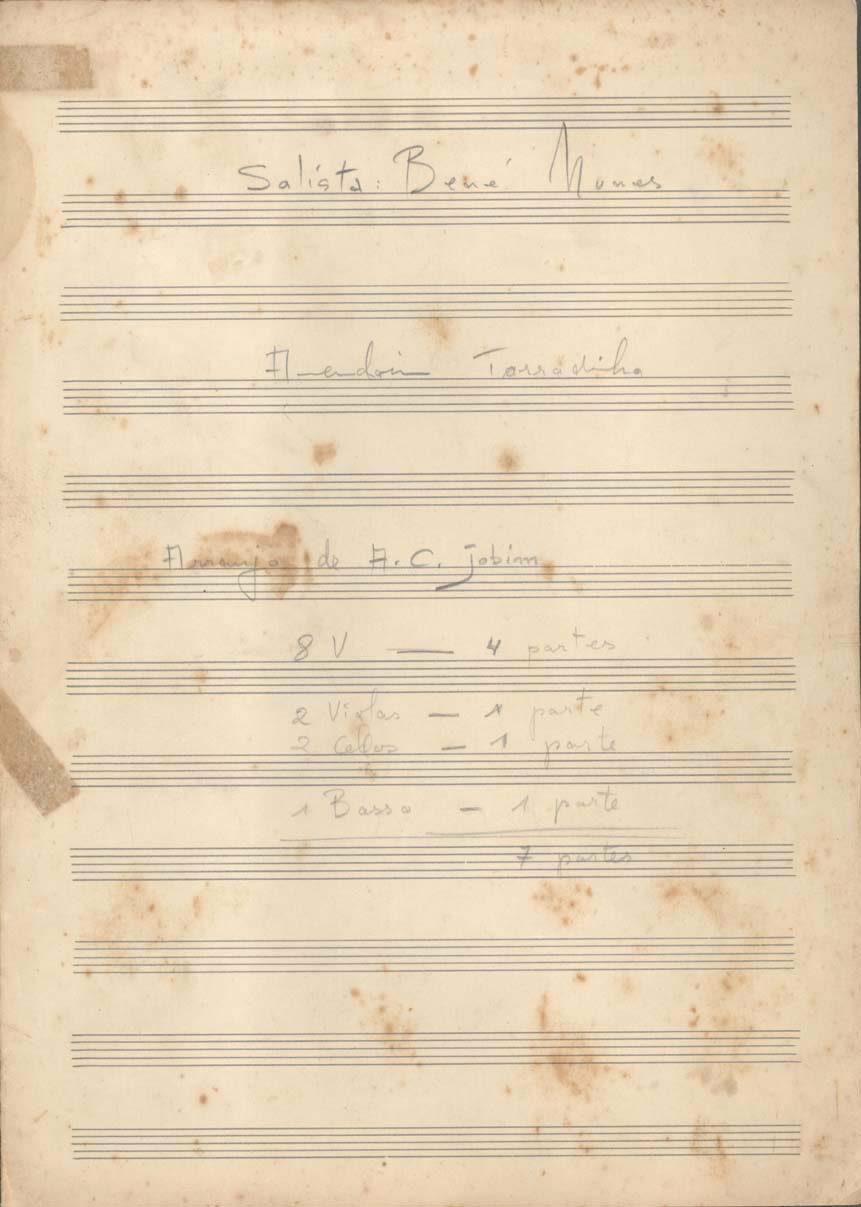 Solista: Bené Nunes
Amendoim Torradinho
Arranjo de A. C. Jobim
8 V — 4 partes
2 Violas — 1 parte
2 Celos — 1 parte
1 Basso — 1 parte
7 partes